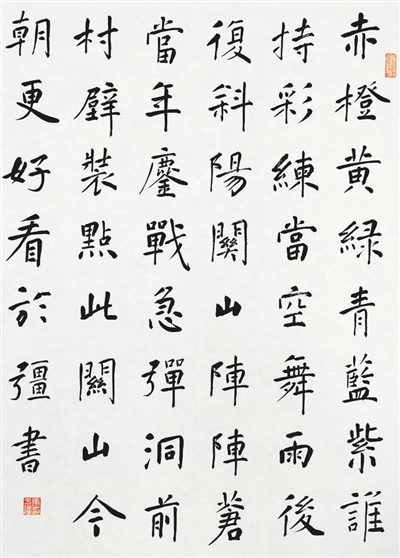 赤橙黃緑青藍紫誰
持彩練當空舞雨後
復斜陽關山陣陣蒼
當年鏖戰急彈洞前
村壁裝點此關山今
朝更好看於彊書